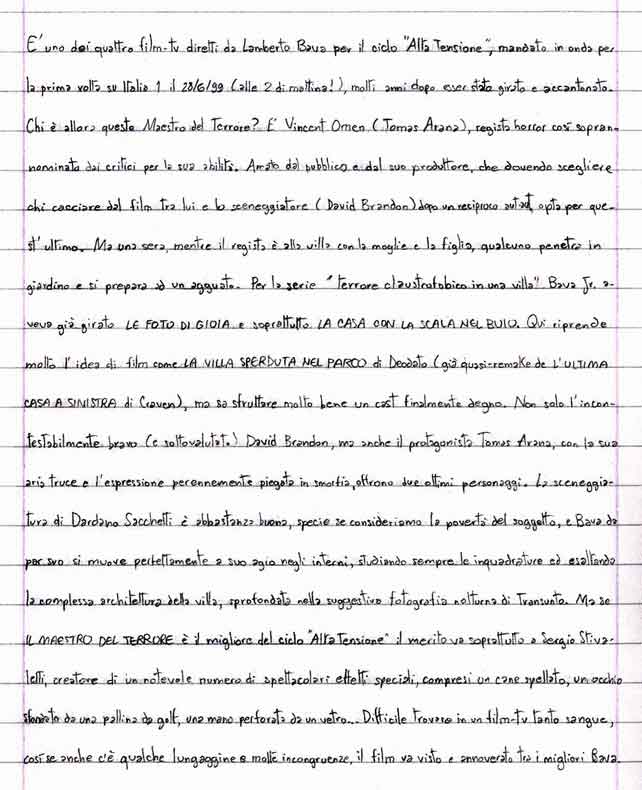 E' uno dei quattro film-tv diretti da Lamberto Bava per il ciclo "Alta Tensione", mandato in onda per
la prima volta su Italia 1 il 28/6/99 (alle 2 di mattina!), molti anni dopo esser stato girato e accantonato.
Chi è allora questo Maestro del Terrore? E' Vincent Omen (Tomas Arana), regista horror così sopran-
nominato dai critici per la sua abilità. Amato dal pubblico e dal suo produttore, che dovendo scegliere
chi cacciare dal film tra lui e lo sceneggiatore (David Brandon) dopo un reciproco aut aut, opta per que-
st'ultimo. Ma una sera, mentre il regista è alla villa con la moglie e la figlia, qualcuno penetra in
giardino e si prepara ad un agguato. Per la serie "terrore claustrofobico in una villa" Bava Jr. a-
veva già girato LE FOTO DI GIOIA e soprattutto LA CASA CON LA SCALA NEL BUIO. Qui riprende
molto l'idea di film come LA VILLA SPERDUTA NEL PARCO di Deodato (già quasi-remake de L'ULTIMA
CASA A SINISTRA di Craven), ma sa sfruttare molto bene un cast finalmente degno. Non solo l'incon-
testabilmente bravo (e sottovalutato) David Brandon, ma anche il protagonista Tomas Arana, con la sua
aria truce e l'espressione perennemente piegata in smorfia, offrono due ottimi personaggi. La sceneggia-
tura di Dardano Sacchetti è abbastanza buona, specie se consideriamo la povertà del soggetto, e Bava da
par suo si muove perfettamente a suo agio negli interni, studiando sempre le inquadrature ed esaltando
la complessa architettura della villa, sprofondata nella suggestiva fotografia notturna di Transunto. Ma se
IL MAESTRO DEL TERRORE è il migliore del ciclo "Alta Tensione" il merito va soprattutto a Sergio Stiva-
letti, creatore di un notevole numero di spettacolari effetti speciali, compresi un cane spellato, un occhio
sfondato da una pallina da golf, una mano perforata da un vetro... Difficile trovare in un film-tv tanto sangue,
così se anche c'è qualche lungaggine e molte incongruenze, il film va visto e annoverato tra i migliori Bava.